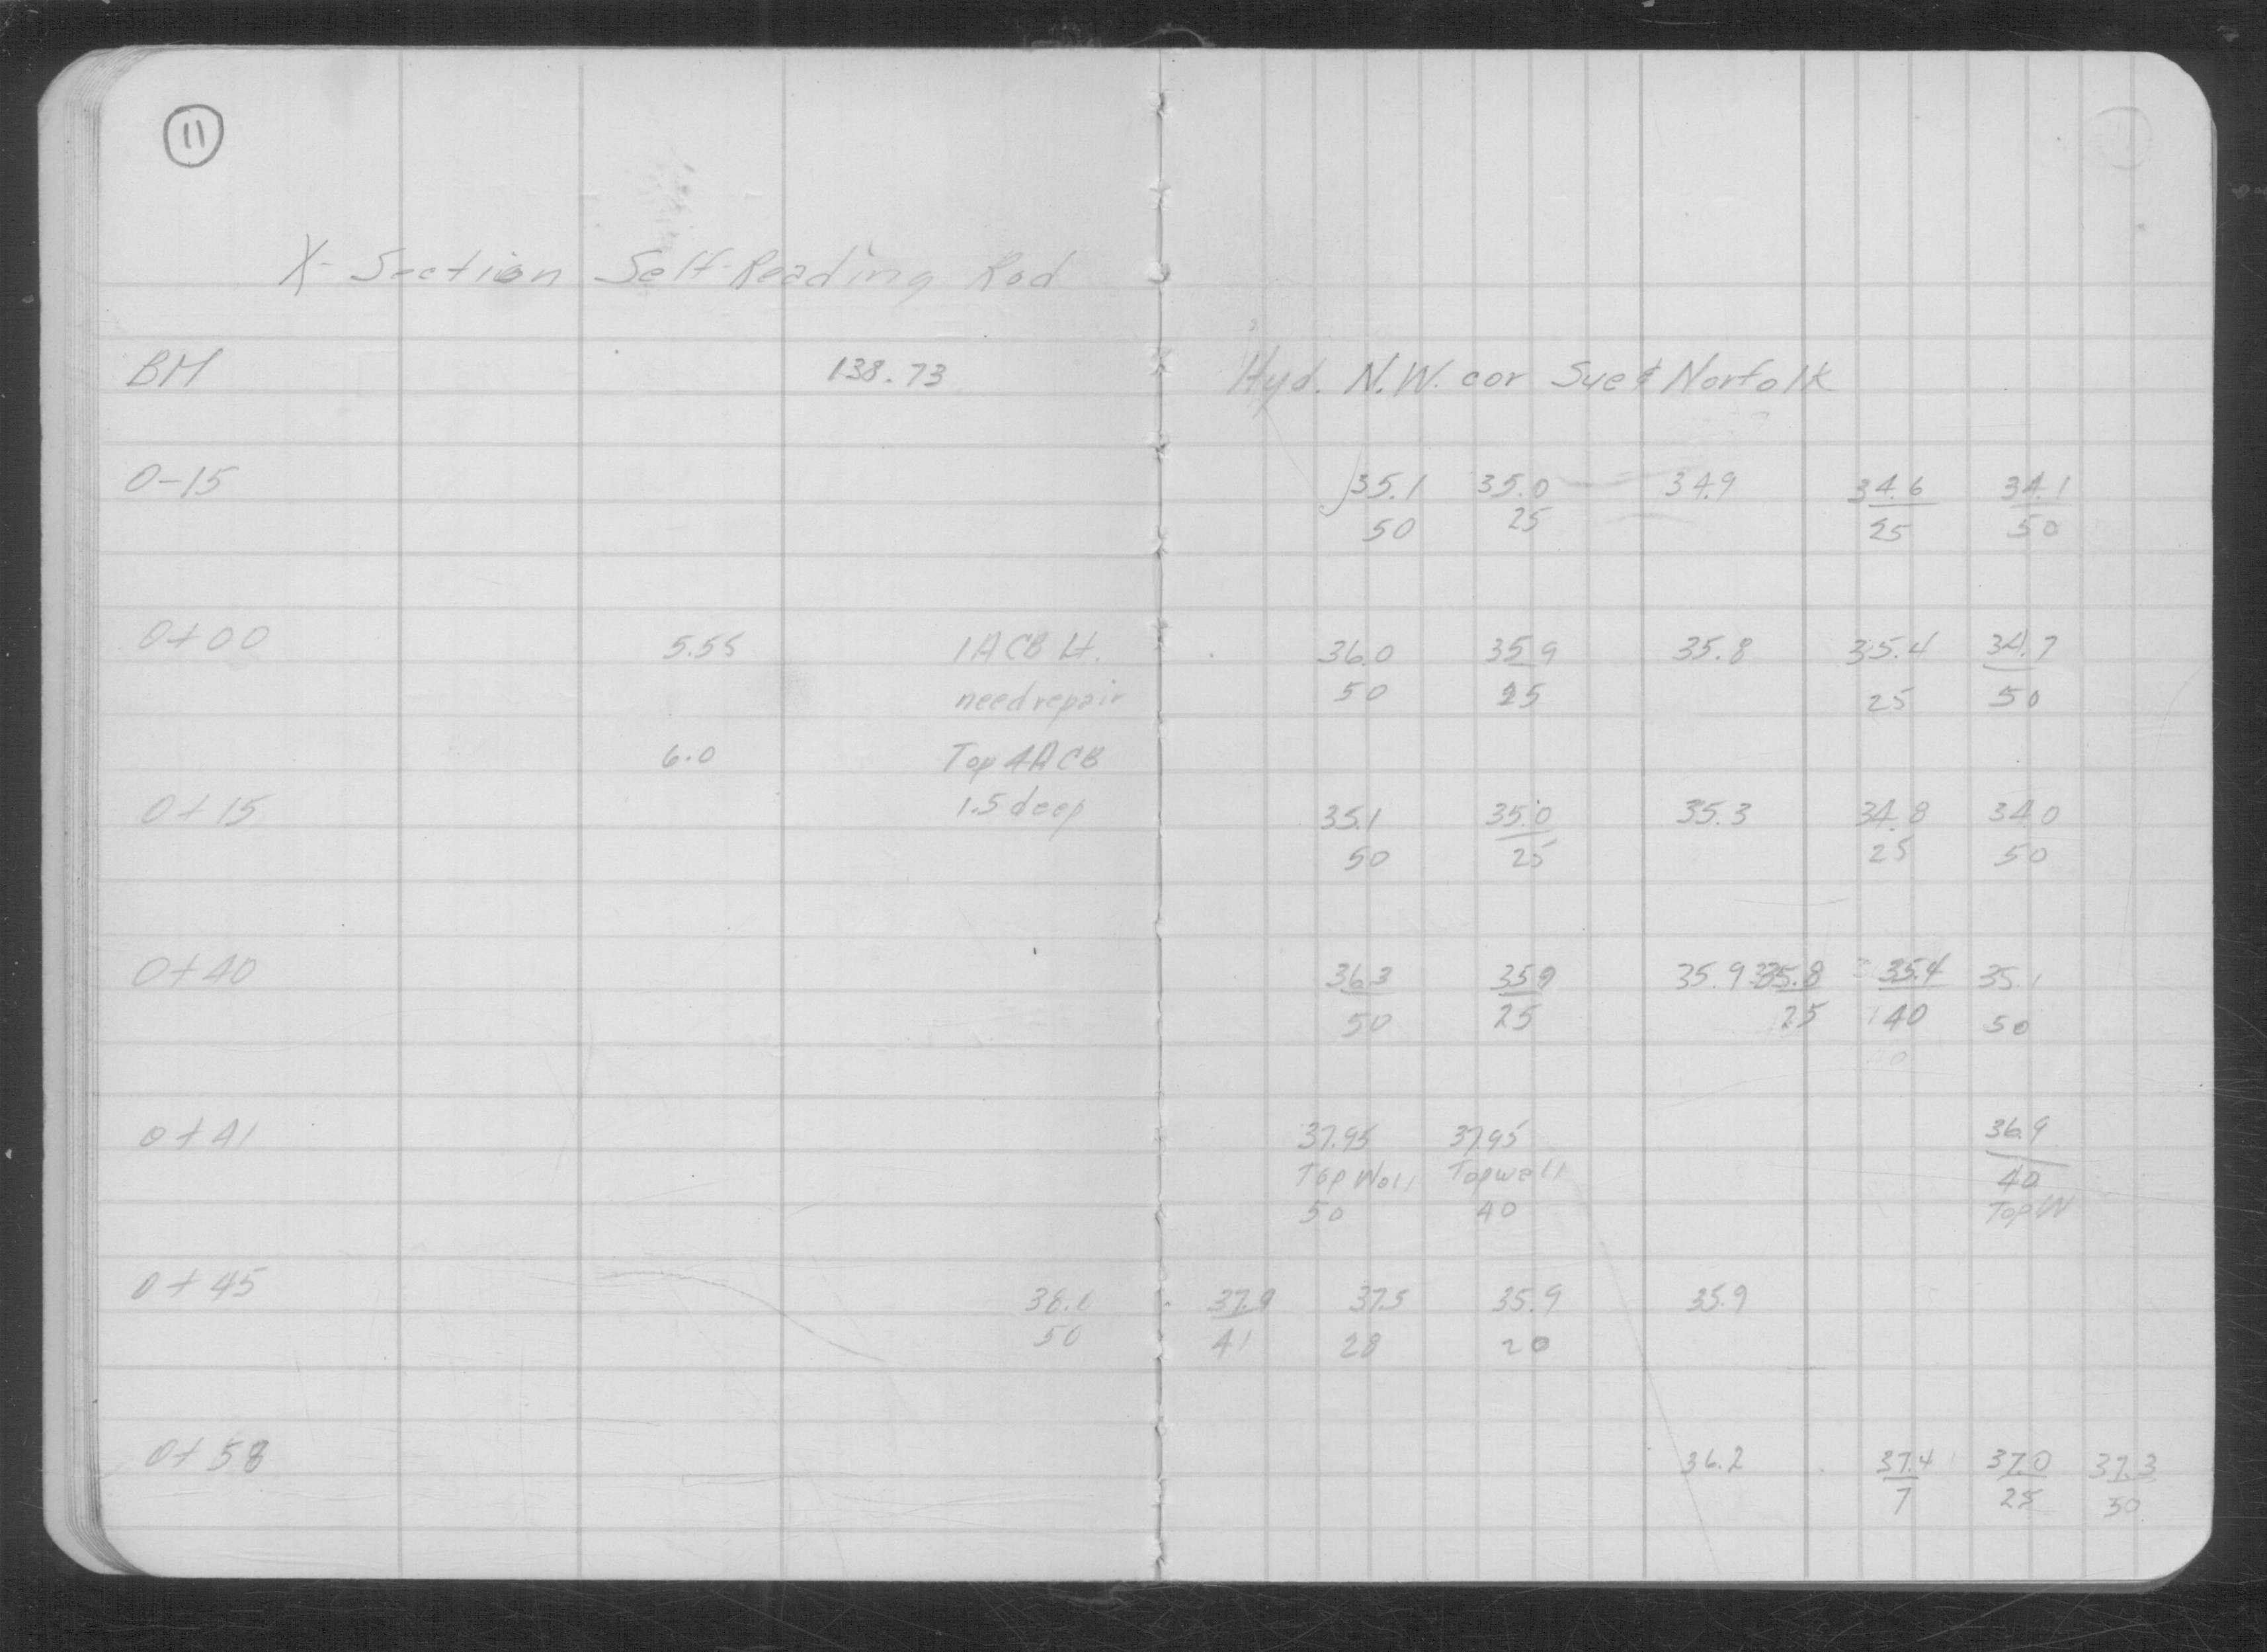 11
X-Section Self-Reading Rod
BM 138.73 Hyd. N.W. cor Sue & Norfolk
0-15 35.1 35.0 34.9 34.6 34.1
50 25 25 50
0+00 5.55 1A CB Lt. 36.0 35.9 35.8 35.4 34.7
need repair 50 25 25 50
6.0 Top 4A CB
0+15 1.5 deep 35.1 35.0 35.3 34.8 34.0
50 25 25 50
0+40 36.3 35.9 35.9 35.8 35.4 35.1
50 25 25 40 50
0+41 37.95 37.95 36.9
Top Wall Top wall 40
50 40 Top W
0+45 38.1 37.9 37.5 35.9 35.9
50 41 28 20
0+58 36.2 37.4 37.0 37.3
7 25 50